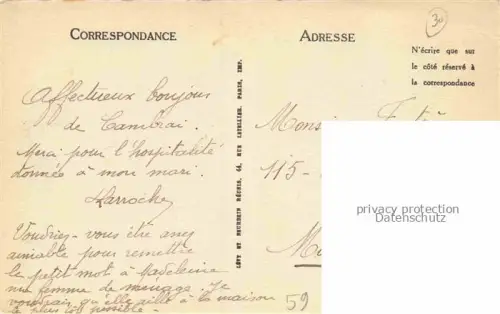 CORRESPONDANCE
ADRESSE
30
N'écrire que sur
le côté réservé à
la correspondance
Affectueux bonjour
de Cambrai.
Merci pour l'hospitalité
donnée à mon mari.
Larroche
Voudriez-vous être assez
aimable pour remettre
le petit mot à Madeleine
ma femme de ménage. Je
voudrais qu'elle aille à la maison
le plus tôt possible.
CÔTY ET BOURDEIN RÉUNIS, 64, RUE LETELLIER, PARIS, IMP.
Monsi
115-
59
privacy protection
Datenschutz